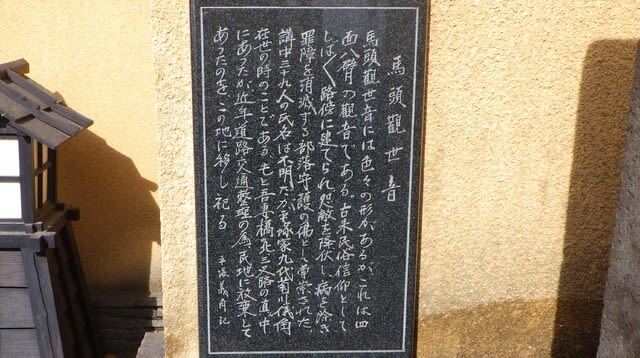 馬頭觀世音
馬頭觀世音には色々の形があるがこれは四
面八臂の觀音である。古来民俗信仰として
しばしば路傍に建てられ怨敵を降伏し病を除き
罪障を消滅する部落守護の佛として尊崇された。
講中三十九人の氏名は不明だが毛塚家九代
在世の時のことであるもと吾妻橋北三叉路の真中
にあったが近年道路交通整理の為民地に放棄して
あったのをこの地に移し祀る